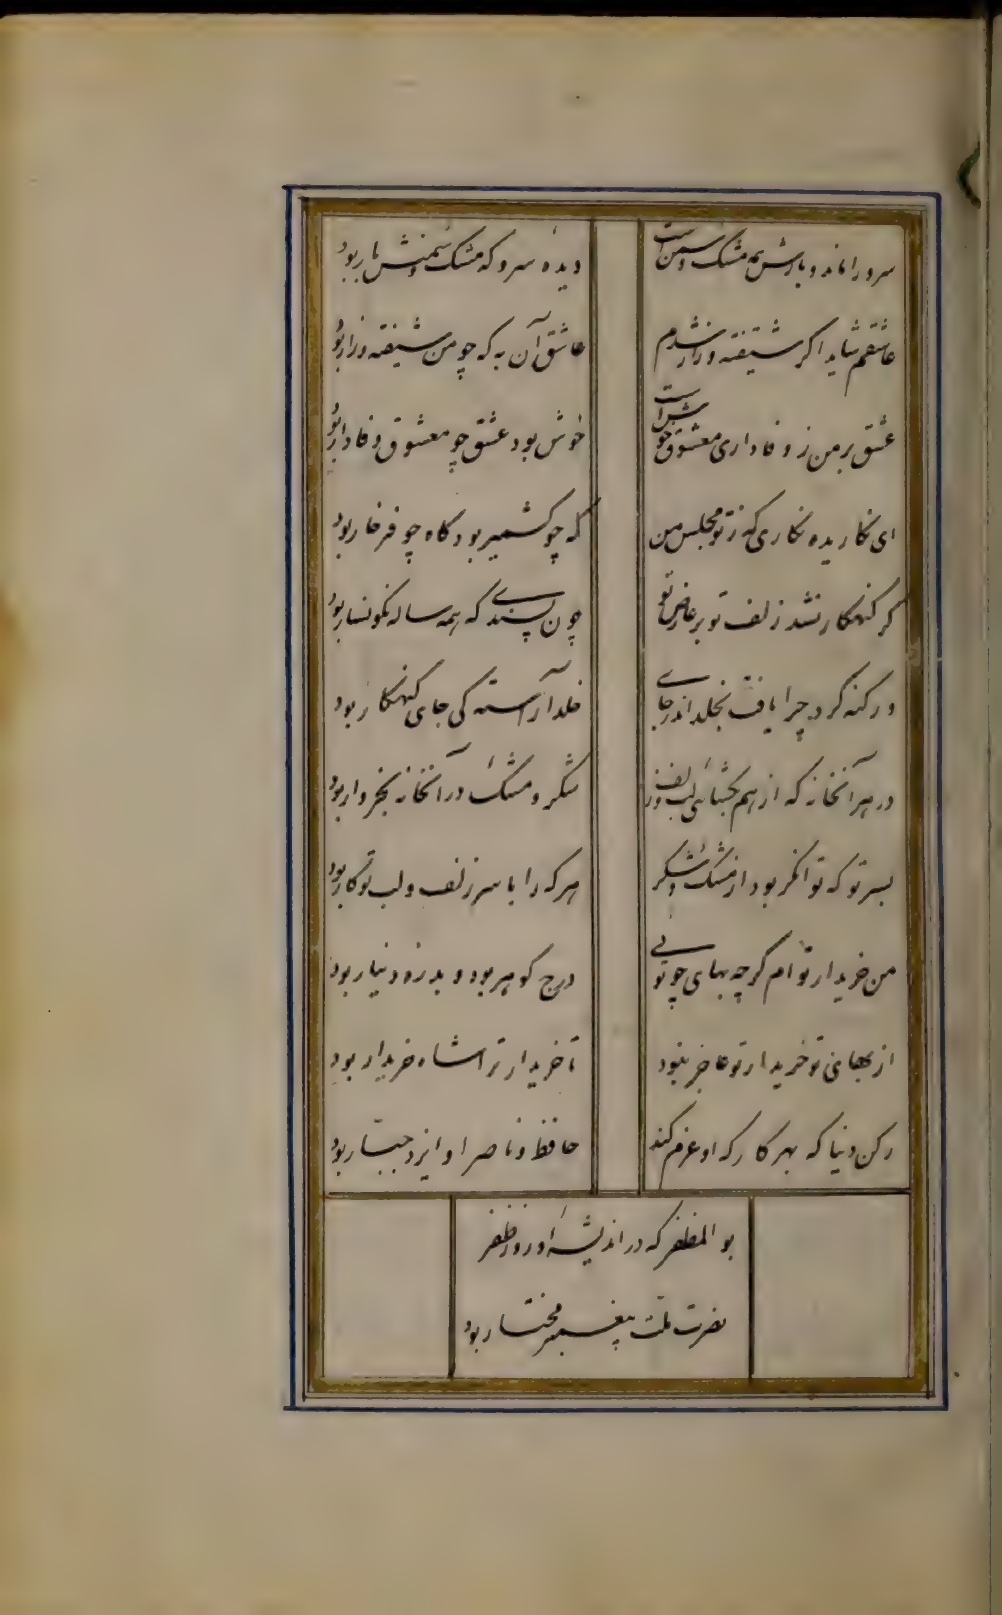 سرو را ماند و بارش همه مشک و سمن است
دیده سرو که مشک و سمنش بار بود
عاشقم شاید اگر شیفته و زار شدم
عاشق آن به که چو من شیفته و زار بود
عشق بر من ز وفاداری معشوق خوش است
خوش بود عشق چو معشوق وفادار بود
ای نکاریده نکاری که ز تو مجلس من
که چو کشمیر بود کاه چو فرخار بود
کر کنهکار نشد زلف تو بر عارض تو
چون پسندی که همه ساله نکونسار بود
ور کنه کرد چرا یافت بخلد اندر جای
خلد آراسته کی جای کنهکار بود
در هر آنخانه که از هم بکشائی لب و زلف
شکر و مشک در آنخانه بخروار بود
بسر تو که توانکر بود از مشک و شکر
هر که را با سر زلف و لب تو کار بود
من خریدار تو ام کر چه بهای چو توئی
درج کوهر بود و بدره دینار بود
از بهای تو خریدار تو عاجز بنود
تا خریدار ترا شاه خریدار بود
رکن دنیا که بهر کار که او عزم کند
حافظ و ناصر او ایزد جبّار بود
بو المظفر که در اندیشه او روز ظفر
نصرت ملّت پیغمبر مختار بود